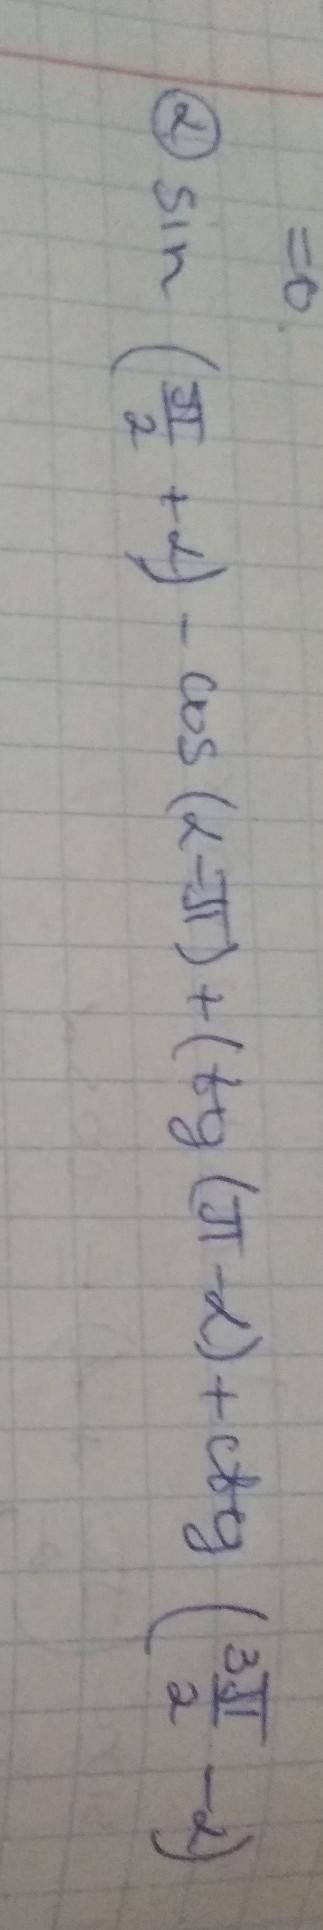 =0.
② sin (π/2 + α) - cos (α-π) + (tg (π-α) + ctg (3π/2 - α)